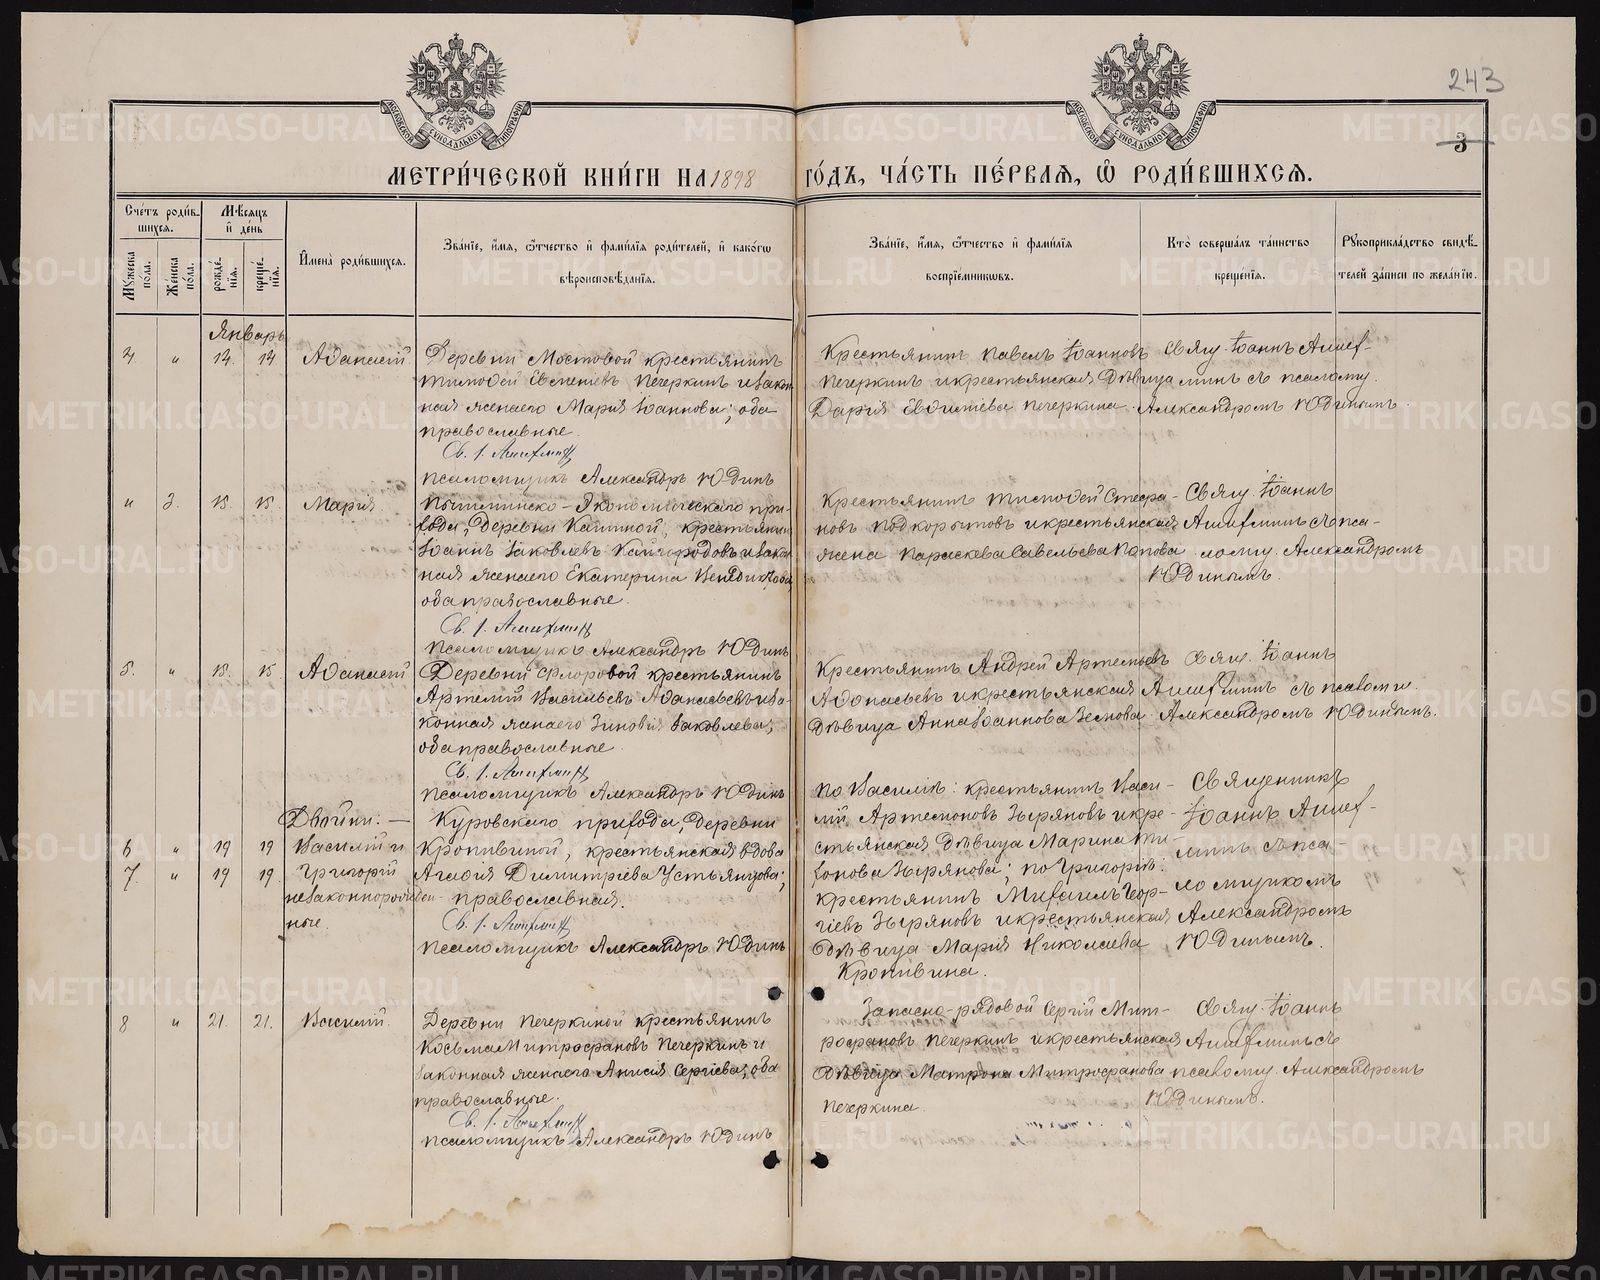 243
3
МЕТРИ́ЧЕСКОЙ КНИ́ГИ НА 1898 ГО́ДЪ, ЧА́СТЬ ПЕ́РВАЯ, Ѡ҆ РОДИ́ВШИХСЯ.
Сче́тъ роди́в-
шихся.
Мѣ́сяцъ
и҆ де́нь
Мꙋ́жеска
по́ла.
Же́нска
по́ла.
рожде́-
нїя.
креще́-
нїя.
И҆мена̀ роди́вшихся.
Зва́нїе, и҆́мя, ѻ҆́тчество и҆ фами́лїя роди́телей, и҆ како́гѡ
вѣроисповѣ́данїя.
Зва́нїе, и҆́мя, ѻ҆́тчество и҆ фами́лїя
воспрїе́мникѡвъ.
Кто̀ соверша́лъ та́инство
креще́нїя.
Рꙋкоприкла́дство свидѣ́-
телей за́писи по жела́нїю.
Январь
4. " 14. 14 Аѳанасий
Деревни Мостовой крестьянинъ
Тимоѳей Евгенiевъ Печеркинъ и закон
ная жена его Марiя Iоаннова; оба
православные.
Св. I. Ашихминъ
Псаломщикъ Александръ Юдинъ
Крестьянинъ Павелъ Iоанновъ
Печеркинъ и крестьянская дѣвица
Дарiя Евѳимiева Печеркина.
Свящ. Iоаннъ Аших-
минъ съ псаломщ.
Александромъ Юдинымъ.
" 3. 15. 15. Марiя
Пышминско-Экономическаго при-
хода, Деревни Каминой, крестьянинъ
Iоаннъ Iаковлевъ Кайгородовъ и закон
ная жена его Екатерина Венедиктова,
оба православные.
Св. I. Ашихминъ
Псаломщикъ Александръ Юдинъ
Крестьянинъ Тимоѳей Стефа-
новъ Подкорытовъ и крестьянская
жена Параскева Савельева Попова
Свящ. Iоаннъ
Ашихминъ съ пса-
ломщ. Александромъ
Юдинымъ.
5. " 15. 15. Аѳанасий
Деревни Флоровой крестьянинъ
Артемiй Васильевъ Аѳанасьевъ и за-
конная жена его Зиновiя Iаковлева;
оба православные.
Св. I. Ашихминъ
Псаломщикъ Александръ Юдинъ
Крестьянинъ Андрей Артемьевъ
Аѳонасьевъ и крестьянская
дѣвица Анна Iоаннова
Свящ. Iоаннъ
Ашихминъ съ псаломщ.
Александромъ Юдинымъ.
Двойни: —
6 " 19 19 Василiй и
7. " 19 19. Григорiй
незаконнорожден-
ные.
Куровскаго прихода, деревни
Кропивиной, крестьянская вдова
Агафiя Димитрiева Устьянцова;
православная.
Св. I. Ашихминъ
Псаломщикъ Александръ Юдинъ
По Василiѣ: крестьянинъ Васи-
лiй Артемоновъ Зыряновъ и кре-
стьянская дѣвица Марина Ти-
хонова Зырянова; по Григорiѣ:
крестьянинъ Михаилъ Геор-
гiевъ Зыряновъ и крестьянская
дѣвица Марiя Николаева
Кропивина.
Священникъ
Iоаннъ Аших-
минъ съ пса-
ломщикомъ
Александромъ
Юдинымъ.
8 " 21. 21. Василiй.
Деревни Печеркиной крестьянинъ
Косьма Митрофановъ Печеркинъ и
законная жена его Анисiя Сергiева; оба
православные.
Св. I. Ашихминъ
Псаломщикъ Александръ Юдинъ
Запасно-рядовой Сергiй Мит-
рофановъ Печеркинъ и крестьянская
дѣвица Матрона Митрофанова
Печеркина.
Свящ. Iоаннъ
Ашихминъ съ
псаломщ. Александромъ
Юдинымъ.
METRIKI.GASO-URAL.RU